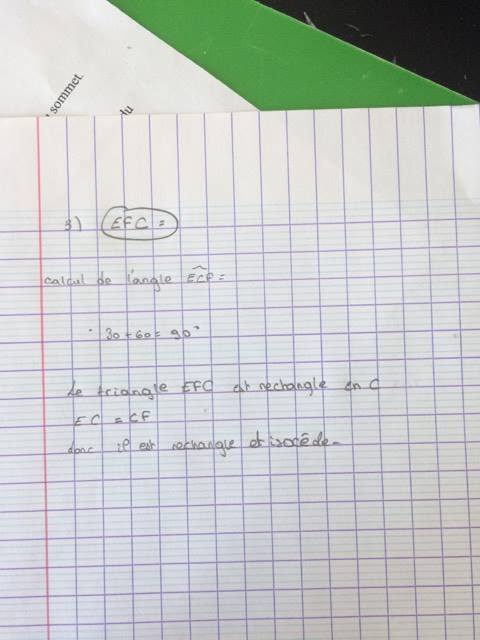 sommet.
du
3) EFC =
calcul de l'angle ECF =
30 + 60 = 90°
Le triangle EFC est rechangle en C
EC = CF
donc il est rechangle et isocède.